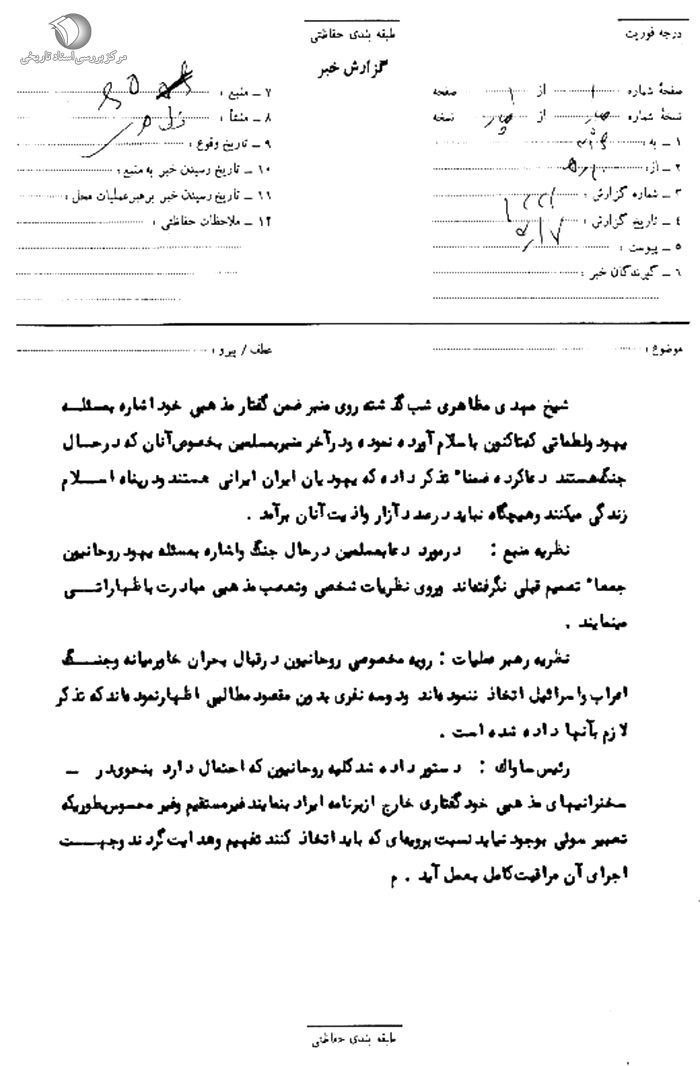 مرکز بررسی اسناد تاریخی
طبقه بندی حفاظتی
درجه فوریت
گزارش خبر
صفحهٔ شماره ۱ از ۱ صفحه
نسخهٔ شماره از نسخه
۱ ـ به :
۲ ـ از :
۳ ـ شماره گزارش :
۴ ـ تاریخ گزارش :
۵ ـ پیوست :
۶ ـ گیرندگان خبر :
۷ ـ منبع :
۸ ـ منشأ :
۹ ـ تاریخ وقوع :
۱۰ ـ تاریخ رسیدن خبر به منبع :
۱۱ ـ تاریخ رسیدن خبر برهبر عملیات محل :
۱۲ ـ ملاحظات حفاظتی :
موضوع :
عطف / پیرو :
شیخ مهدی مظاهری شب گذشته روی منبر ضمن گفتار مذهبی خود اشاره بمسئله
یهود ولطماتی که تاکنون باسلام آورده نموده ودرآخر منبربمسلمین بخصوص آنان که درحال
جنگ هستند دعاکرده ضمنا" تذکر داده که یهودیان ایران ایرانی هستند ودرپناه اسلام
زندگی میکنند وهیچگاه نباید درصدد آزار واذیت آنان برآمد .
نظریه منبع : درمورد دعابمسلمین درحال جنگ واشاره بمسئله یهود روحانیون
جمعا" تصمیم قبلی نگرفته اند وروی نظریات شخصی وتعصب مذهبی مبادرت باظهاراتی
مینمایند .
نظریه رهبر عملیات : رویه مخصوصی روحانیون درقبال بحران خاورمیانه وجنگ
اعراب واسرائیل اتخاذ ننموده اند ودوسه نفری بدون مقصود مطالبی اظهارنموده اند که تذکر
لازم بآنها داده شده است .
رئیس ساواك : دستور داده شد کلیه روحانیون که احتمال دارد بنحوی در ـ
سخنرانیهای مذهبی خود گفتاری خارج ازبرنامه ایراد بنمایند غیرمستقیم وغیر محسوس بطوریکه
تعبیر سوئی بوجود نیاید نسبت برویه ای که باید اتخاذ کنند تفهیم وهدایت گردند وجهت
اجرای آن مراقبت کامل بعمل آید . م
طبقه بندی حفاظتی